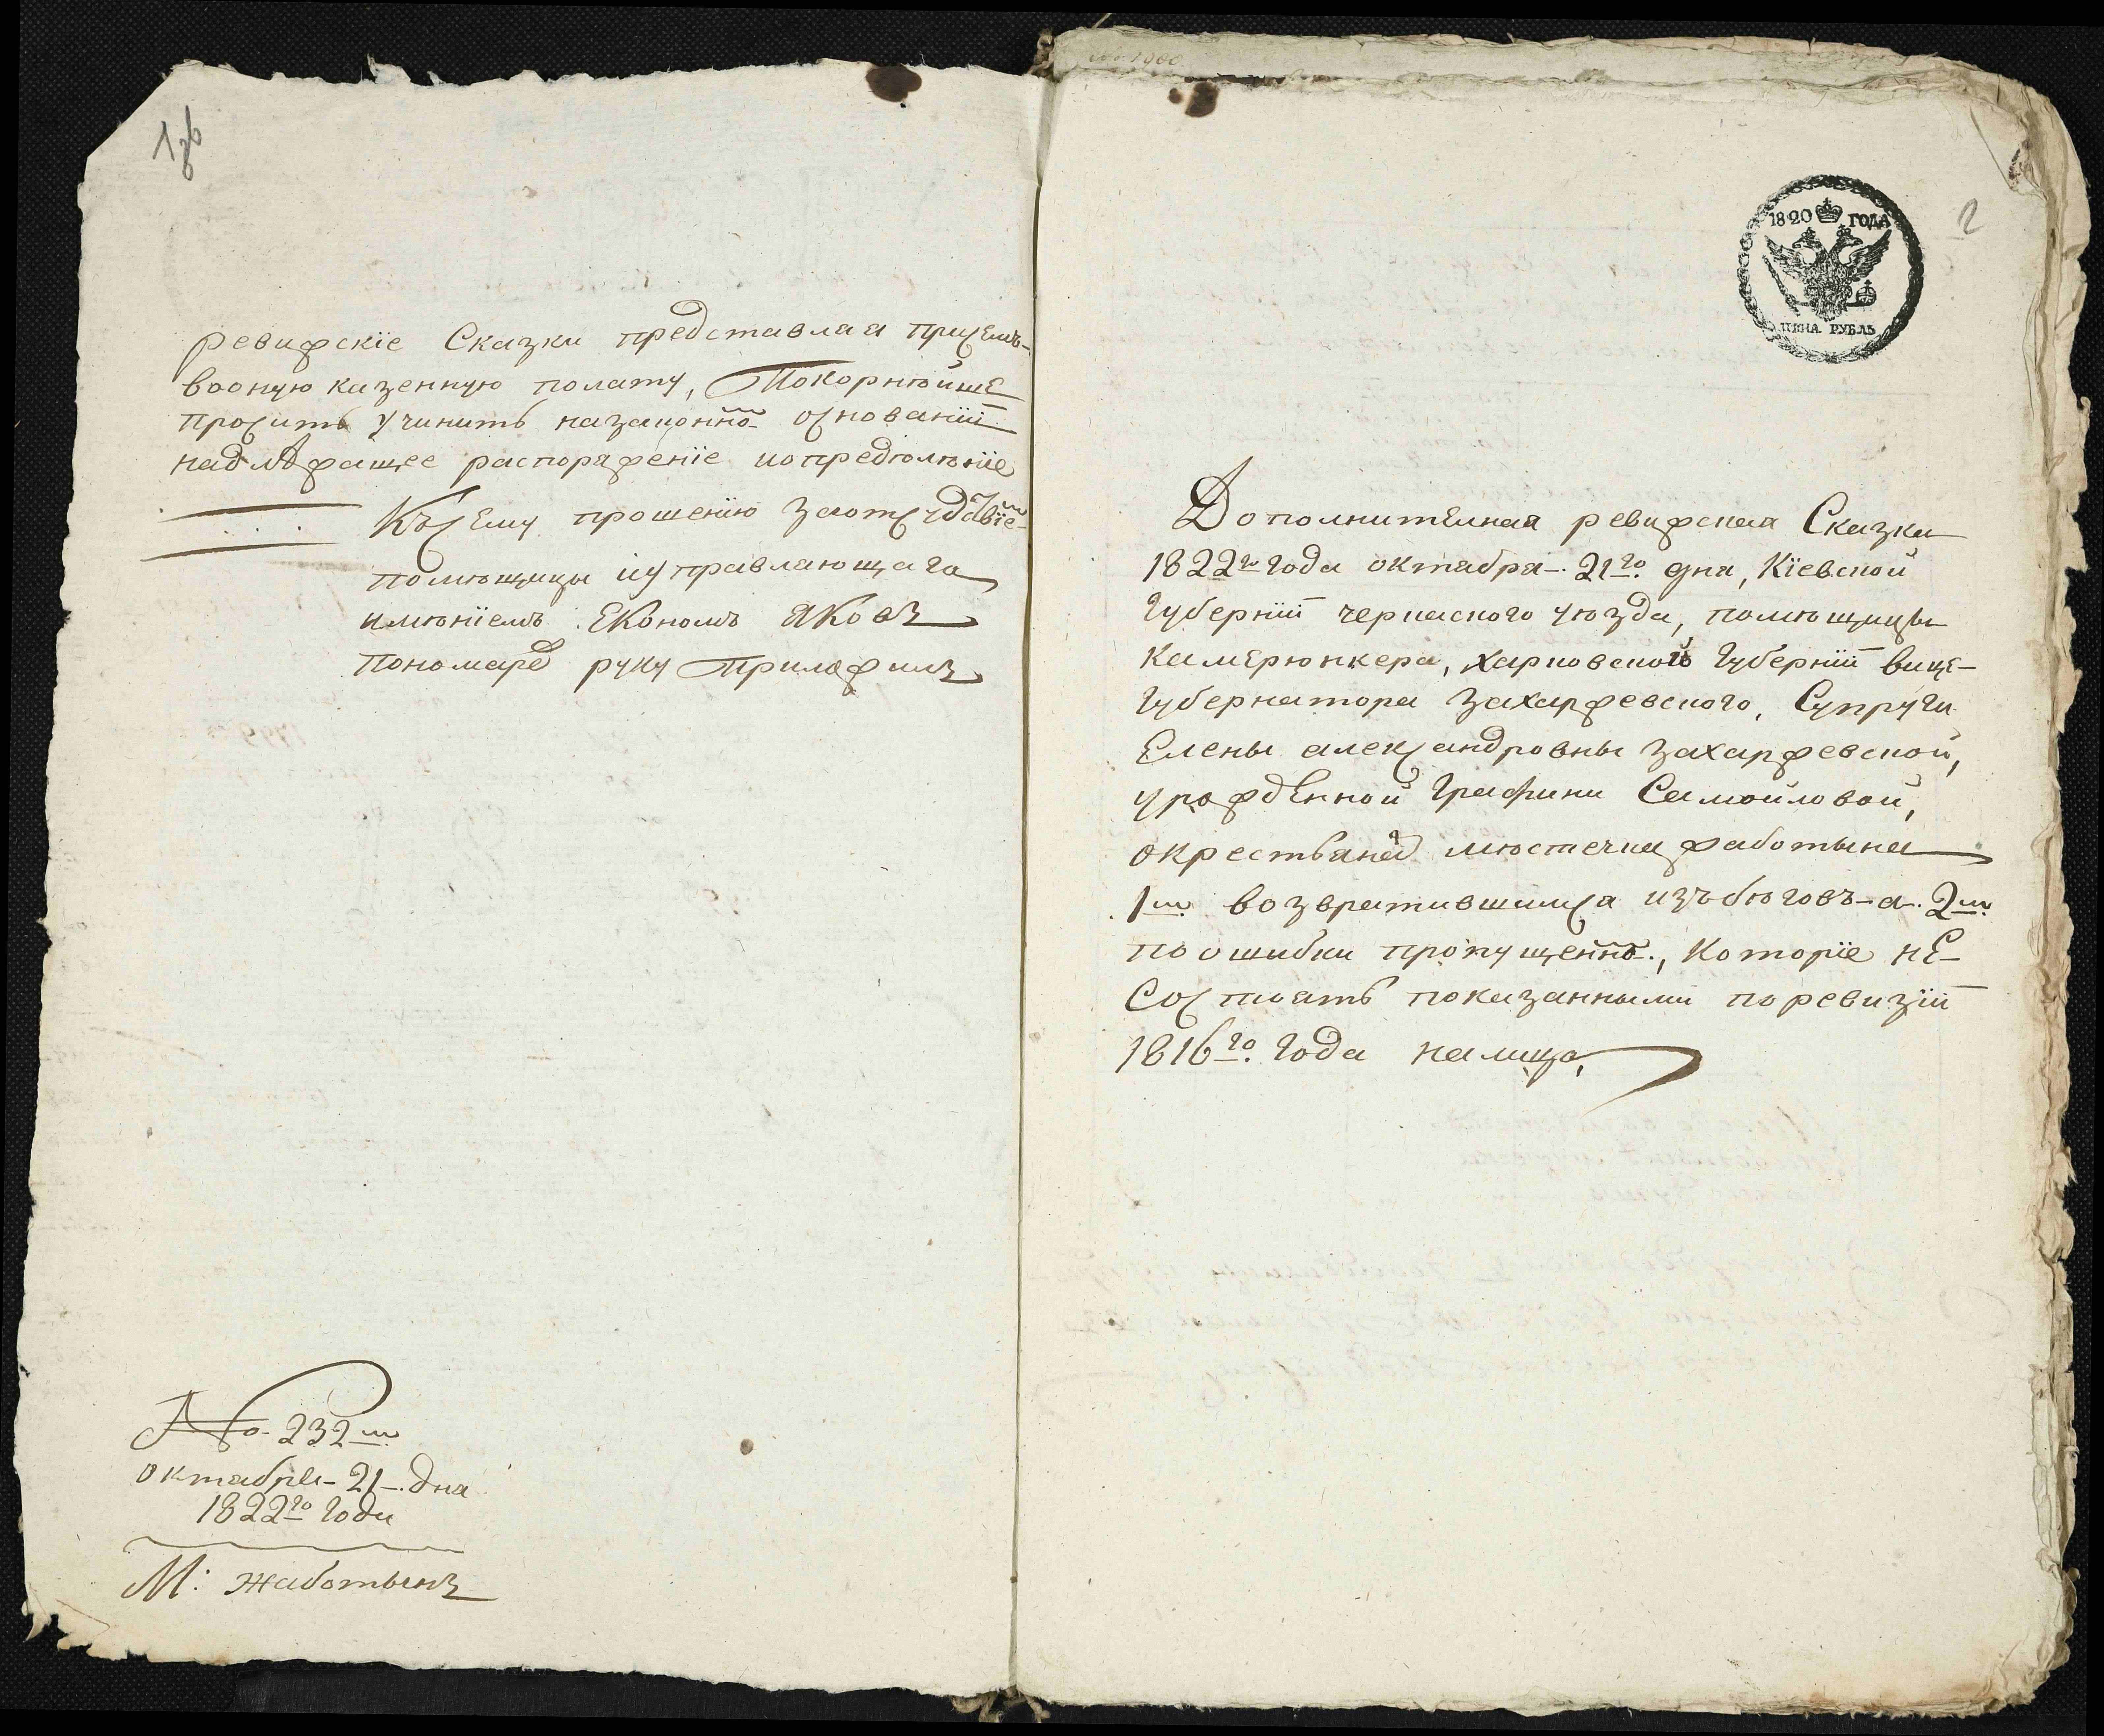 1зв
ревижскіе Сказки представляя присемъ
вооную казенную полату, Покорнѣйше
проситъ учинить назаконно основаніи
надлѣжащее распоряженіе иопредѣленіе
Късему прошенію заотсудствіем
помѣщицы иуправляющаго
имѣніемъ Економъ Яковъ
Пономаревъ руку Приложилъ
No 232м
октября 21 дня
1822го года
М: Жаботынъ
2
1820 ГОДА
ЦѢНА РУБЛЬ
Дополнителная ревижская Сказка
1822го года октября 21го дня, Кіевской
Губерніи черкаского уѣзда, помѣщицы
камеръюнкера, харковской Губерніи вице-
Губернатора Захаржевского, Супруги
Елены александровны Захаржевской,
урожденной Графини Самойловой,
окрестьянед мѣстечка жаботына
1м возвратившимся изъбѣговъ а 2м
по ошибки пропущенно, Которіе не
Состоятъ показанными поревизіи
1816го года налицо,